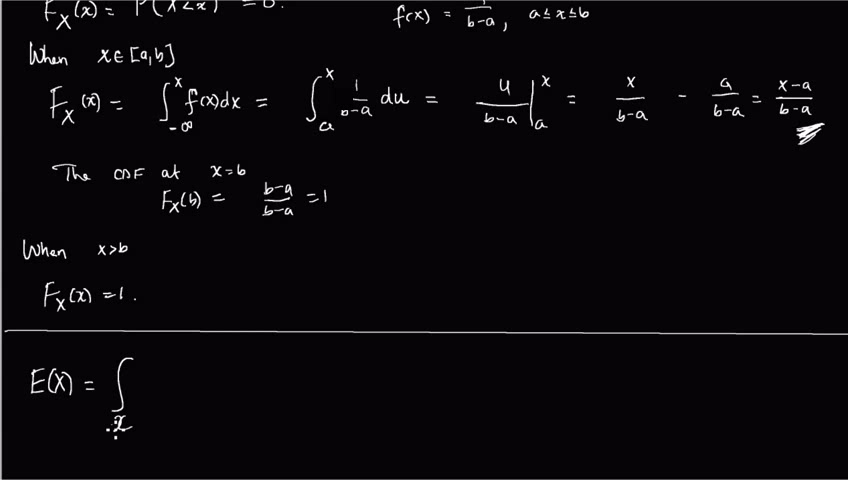 F_X(x) = P(X<x) = 0.
f(x) = 1/(b-a), a≤x≤b
When x∈[a,b]
F_X(x) = ∫_{-∞}^{x} f(x)dx = ∫_{a}^{x} 1/(b-a) du = u/(b-a) |_{a}^{x} = x/(b-a) - a/(b-a) = (x-a)/(b-a)
The CDF at x=b
F_X(b) = (b-a)/(b-a) = 1
When x>b
F_X(x) = 1.
E(X) = ∫_x